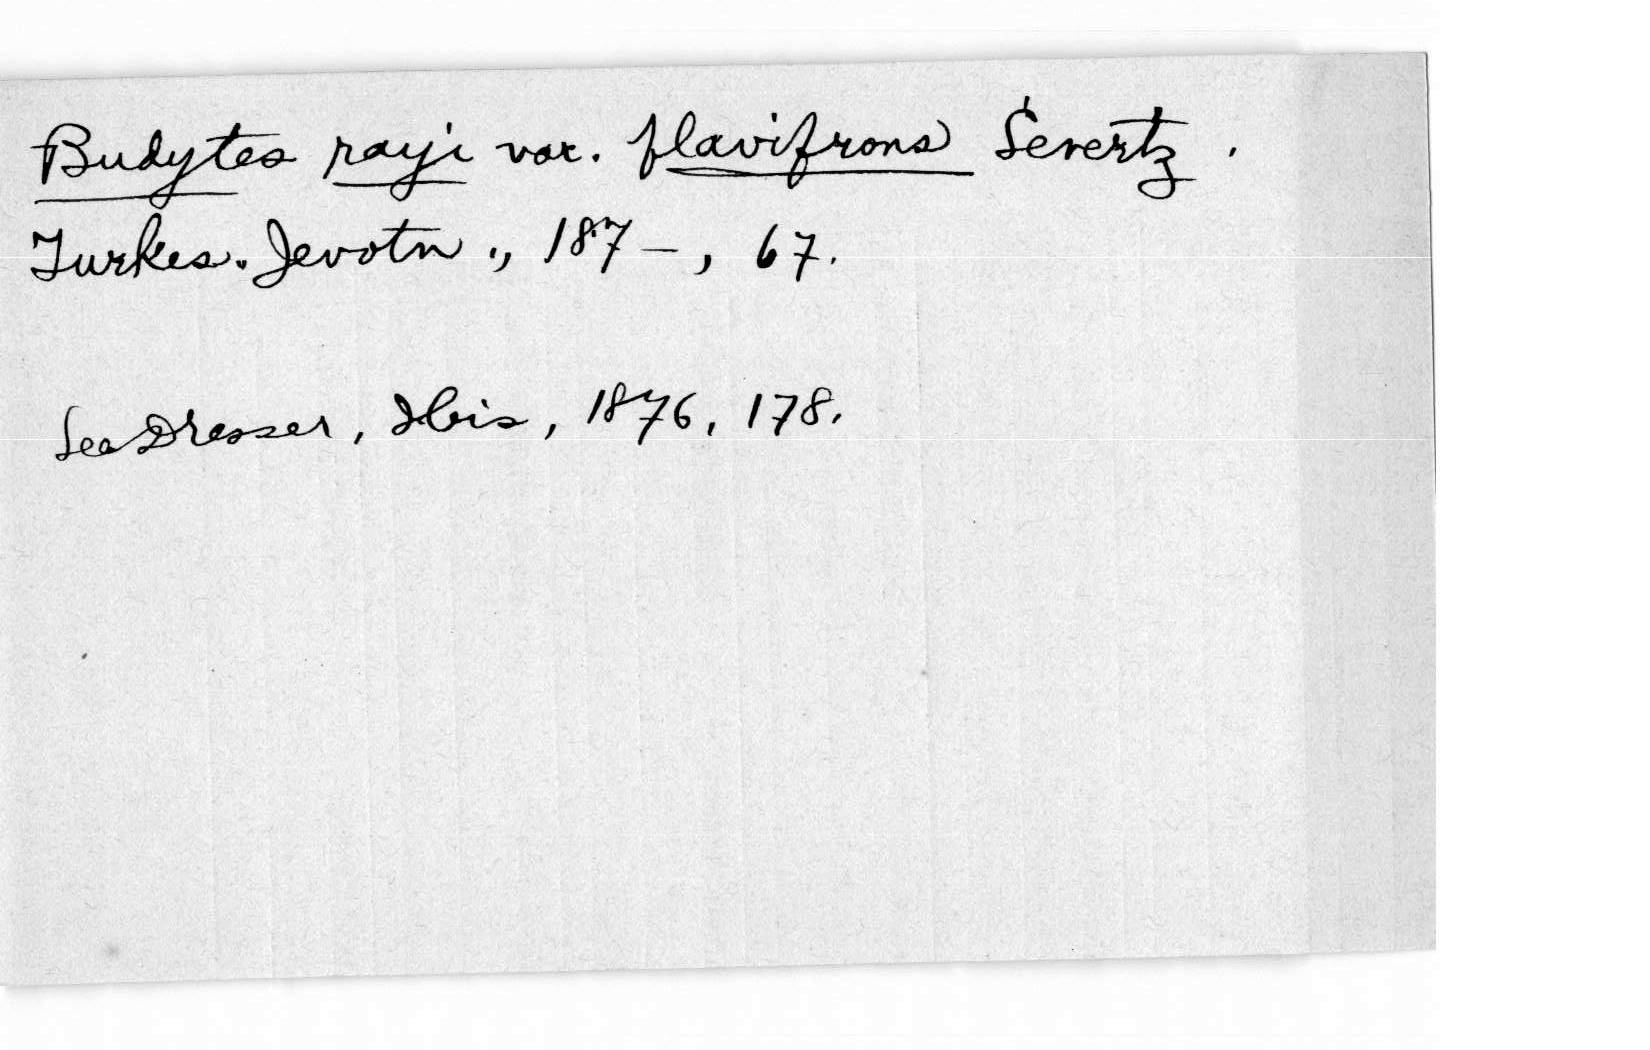 Budytes rayi var. flavifrons Severtz.
Turkes. Jevotn., 187-, 67.
See Dresser, Ibis, 1876, 178.